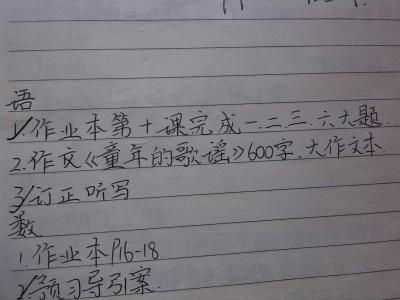 语
1.作业本第十课完成一.二.三.六大题.
2.作文《童年的歌谣》600字.大作文本.
3.订正听写
数
1.作业本P16-18.
2.预习导引案.